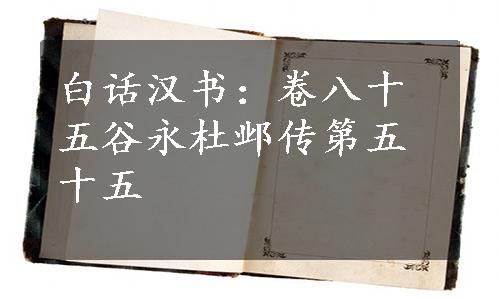 白话汉书：卷八十
五谷永杜邺传第五
十五